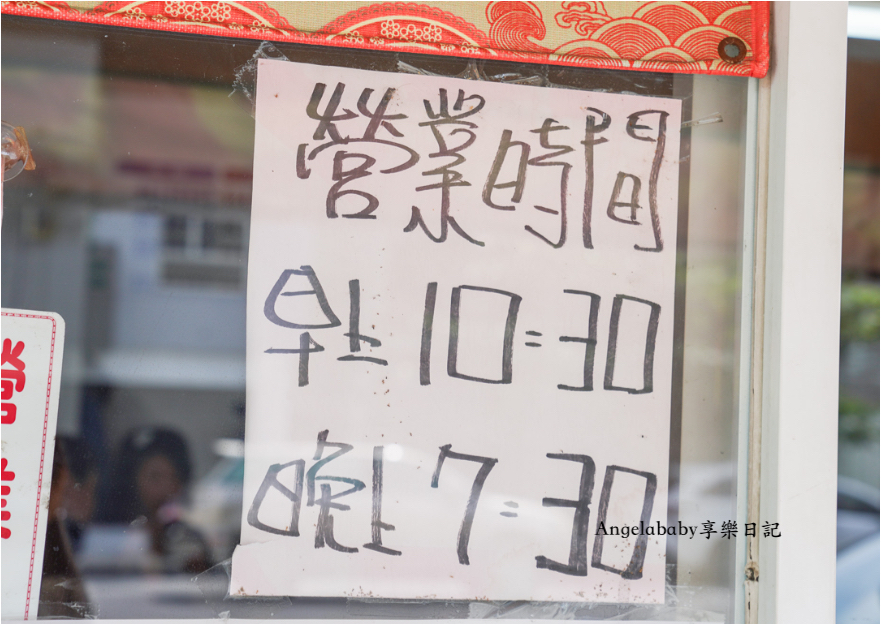 營業時間
早上10:30
晚上7:30
Angelababy享樂日記